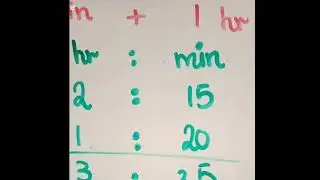 in + 1 hr
hr : min
2 : 15
1 : 20
3 : 35